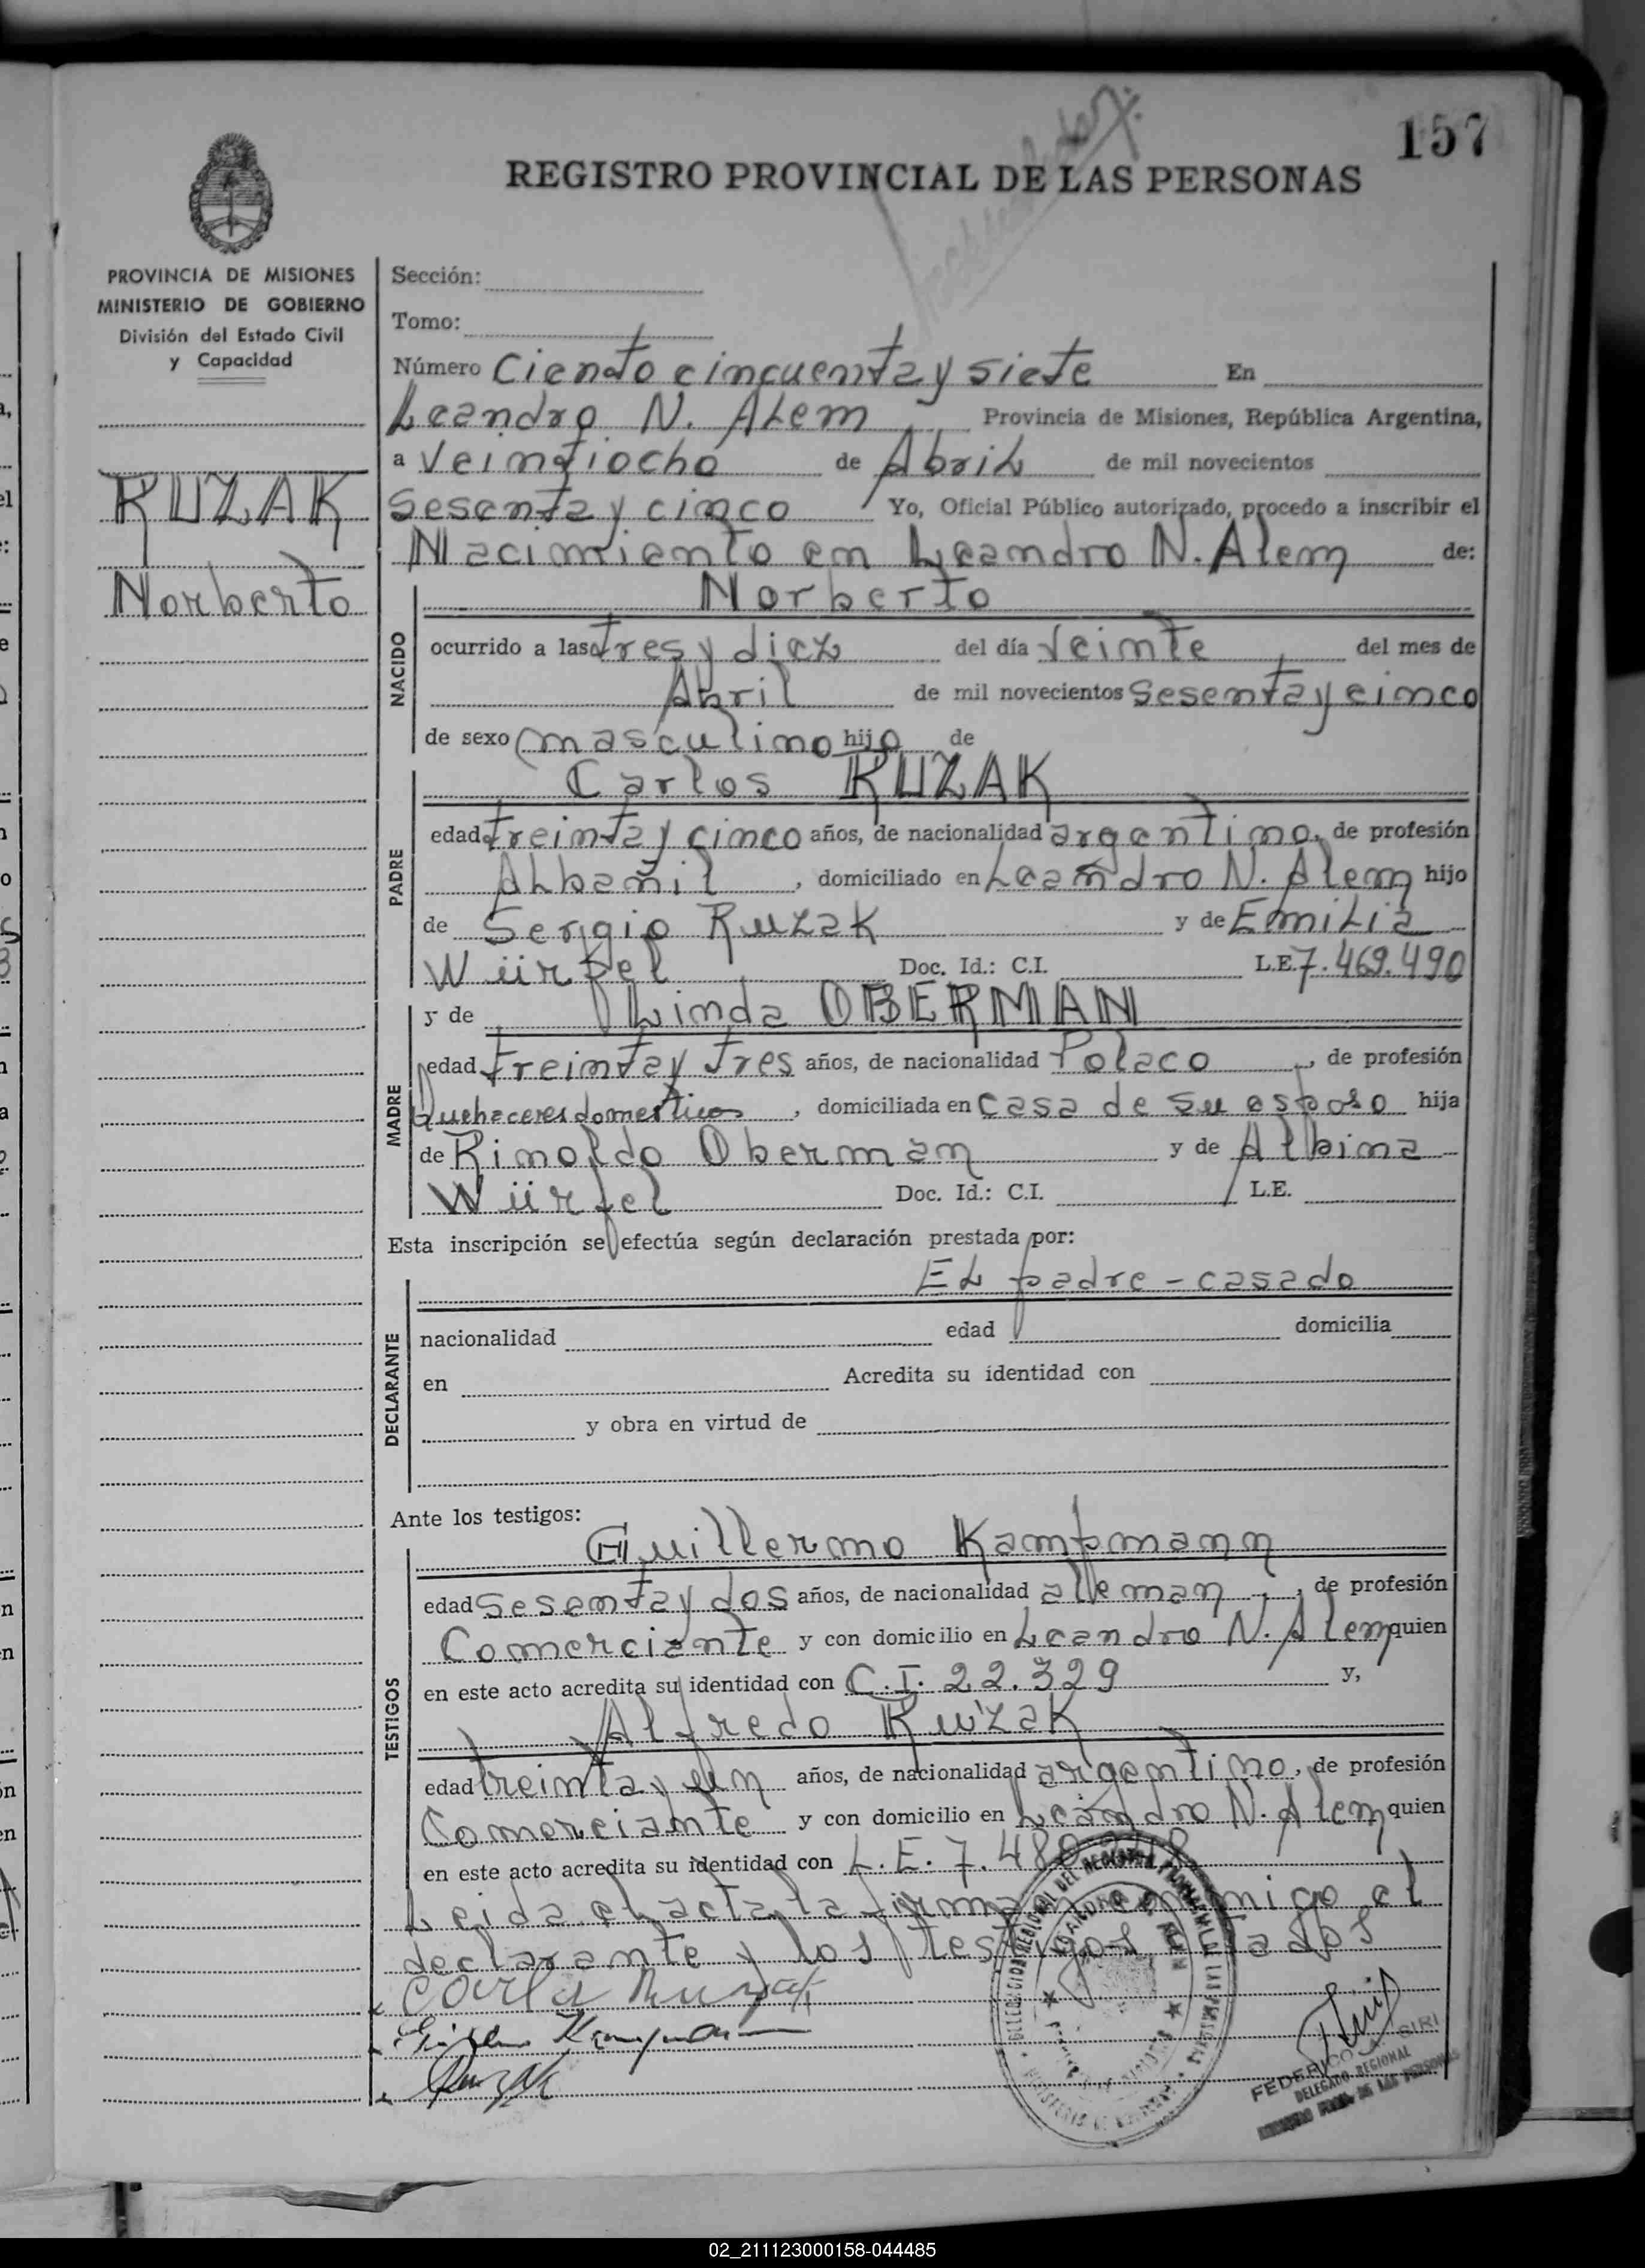 157
REGISTRO PROVINCIAL DE LAS PERSONAS
PROVINCIA DE MISIONES
MINISTERIO DE GOBIERNO
División del Estado Civil
y Capacidad
RUZAK
Norberto
Sección:
Tomo:
Número Ciento cincuenta y siete En
Leandro N. Alem Provincia de Misiones, República Argentina,
a Veintiocho de Abril de mil novecientos
Sesenta y cinco Yo, Oficial Público autorizado, procedo a inscribir el
Nacimiento en Leandro N. Alem de:
NACIDO
Norberto
ocurrido a las tres y diez del día Veinte del mes de
Abril de mil novecientos Sesenta y cinco
de sexo masculino hijo de
PADRE
Carlos RUZAK
edad treinta y cinco años, de nacionalidad argentino, de profesión
Albañil, domiciliado en Leandro N. Alem hijo
de Sergio Ruzak y de Emilia
Würfel Doc. Id.: C.I. L.E. 7.469.490
MADRE
y de Linda OBERMAN
edad treinta y tres años, de nacionalidad Polaco, de profesión
Quehaceres domesticos, domiciliada en casa de su esposo hija
de Rinoldo Oberman y de Albina
Würfel Doc. Id.: C.I. L.E.
Esta inscripción se efectúa según declaración prestada por:
DECLARANTE
El padre - casado
nacionalidad edad domicilia
en Acredita su identidad con
y obra en virtud de
Ante los testigos:
TESTIGOS
Guillermo Kampmann
edad Sesenta y dos años, de nacionalidad alleman, de profesión
Comerciante y con domicilio en Leandro N. Alem quien
en este acto acredita su identidad con C.I. 22.329 y,
Alfredo Ruzak
edad treinta y un años, de nacionalidad argentino, de profesión
Comerciante y con domicilio en Leandro N. Alem quien
en este acto acredita su identidad con L.E. 7.480
Leida el acta la firman conmigo el
declarante y los testigos citados
Carlos Ruzak
Guillermo Kampmann
Ruzak
FEDERICO A. SIRI
DELEGADO REGIONAL
REGISTRO PROV. DE LAS PERSONAS
02_211123000158-044485